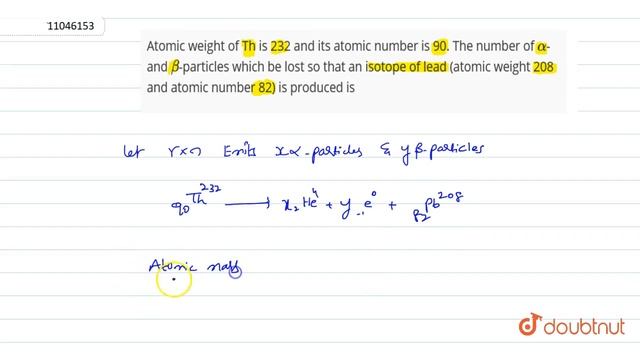 11046153
Atomic weight of Th is 232 and its atomic number is 90. The number of α-
and β-particles which be lost so that an isotope of lead (atomic weight 208
and atomic number 82) is produced is
let rxn Emits x α-particles & y β-particles
₉₀Th²³² ⟶ x ₂He⁴ + y ₋₁e⁰ + ₈₂Pb²⁰⁸
Atomic mass
doubtnut